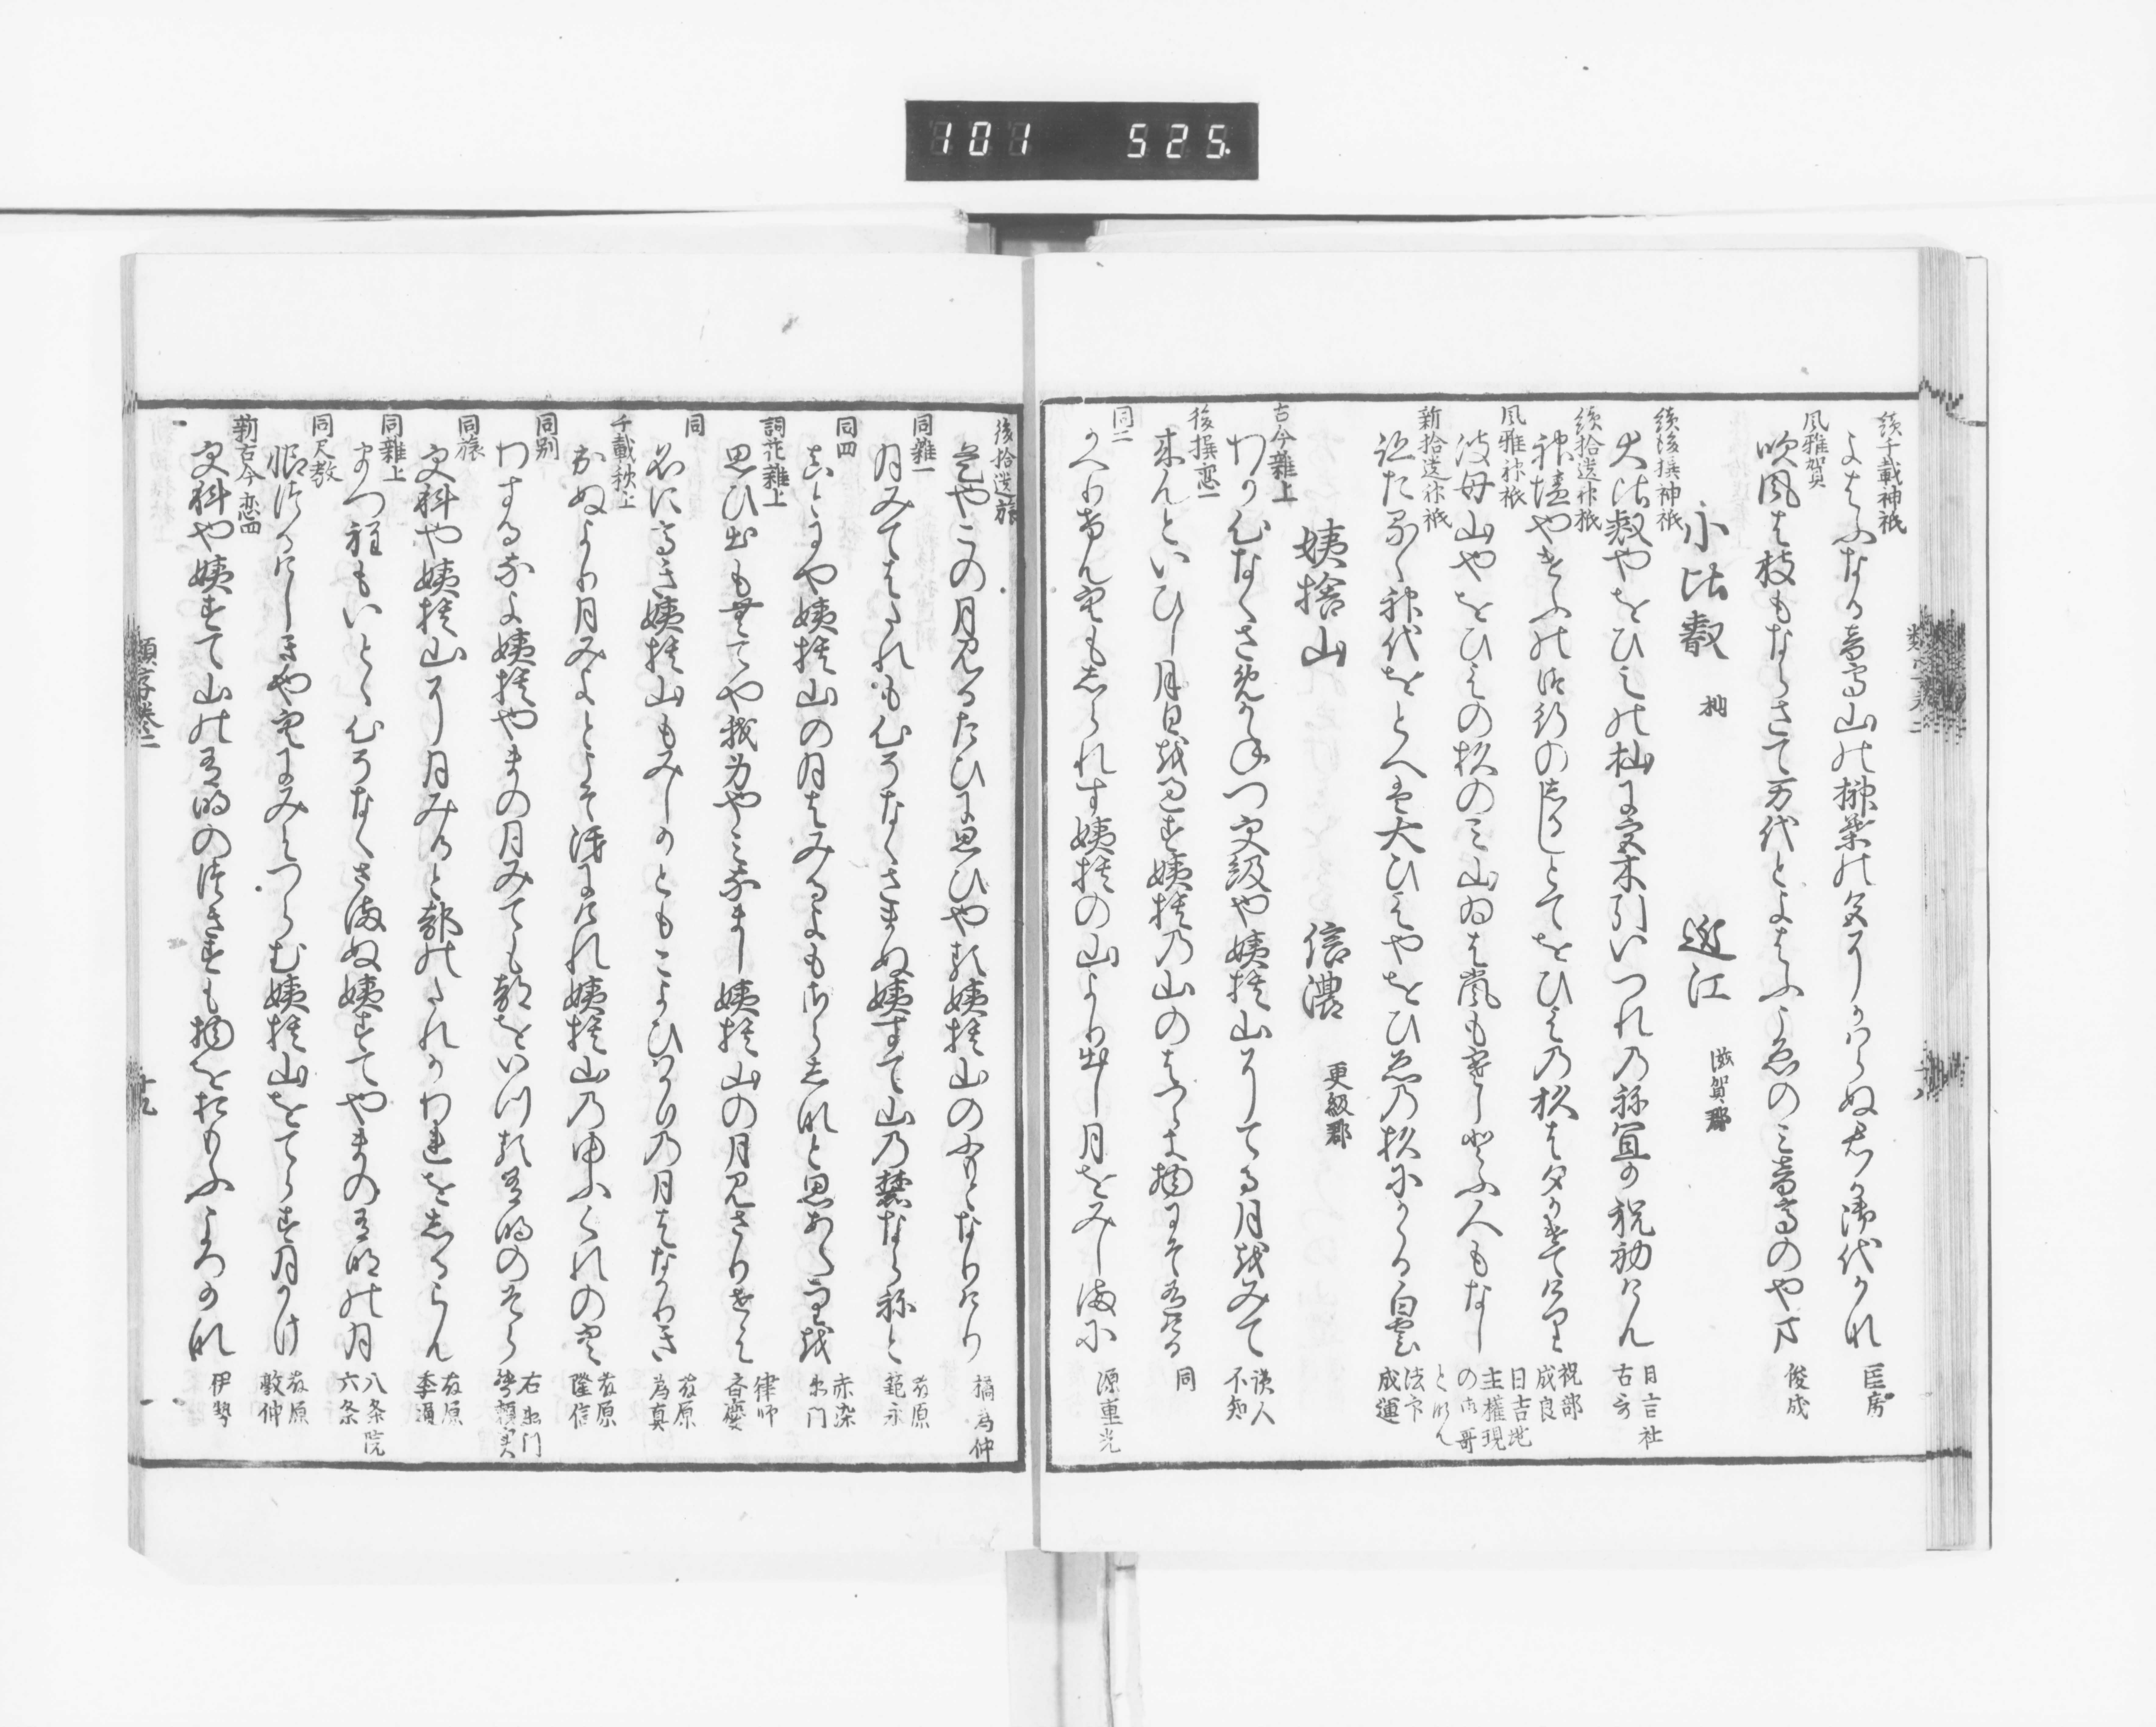 101 525.
続千載神祇
よはふなる音高山の榊葉の色にかはらぬ君か御代かな
匡房
風雅賀
吹風は枝もならさて万代とよはふ声のみ音高のやま
俊成
小比叡 杣 近江 滋賀郡
続後撰神祇
大比叡やをひえの杣に宮木引いつれの祢宜か祝初けん
日吉社
古哥
続拾遺神祇
神垣やけふの御幸のしるしとてをひえの杉は
祝部
成良
風雅神祇
波母山やをひえの杉のみ山ゐは嵐も寒しとふ人もなし
日吉地
主権現
の御哥
となん
新拾遺神祇
神代をとへは大ひえやをひえの杉にかゝる白雲
法印
成運
姨捨山 信濃 更級郡
古今雑上
わか心なくさめかねつ更級や姨捨山にてる月をみて
読人
不知
後撰恋一
来んといひし月日を過す姨捨の山のはつらき物にそ有ける
同
同二
かへりけん空もしられす姨捨の山より出し月をみしまに
源重光
後拾遺旅
是やこの月見るたひに思ひやる姨捨山の麓なりけり
橘為仲
同雑一
月みてはたれも心そなくさまぬ姨すて山の麓ならねと
藤原
範永
同四
姨捨山の月はみるよもさらしなと思あたりを
赤染
衛門
詞花雑上
思ひ出もなくてや我身やみなまし姨捨山の月見さりせは
律師
済慶
同
名に高き姨捨山もみしかともこよひはかりの月はなかりき
藤原
為真
千載秋上
出ぬより月みよとこそ渓にけれ姨捨山の夕くれの空
藤原
隆信
同別
わするなよ姨捨やまの月みても都をいつる有明のそら
右衛門
督頼実
同旅
更科や姨捨山に月みると都のたれかわれをしるらん
藤原
季通
同雑上
まつ程もいとゝ心そなくさまぬ姨すてやまの有明の月
八条院
六条
同尺教
空にみつらむ姨捨山をてらす月かけ
藤原
敦仲
新古今恋四
更科や姨すて山の有明のつきすも物をおもふころかな
伊勢
類字巻二
十九